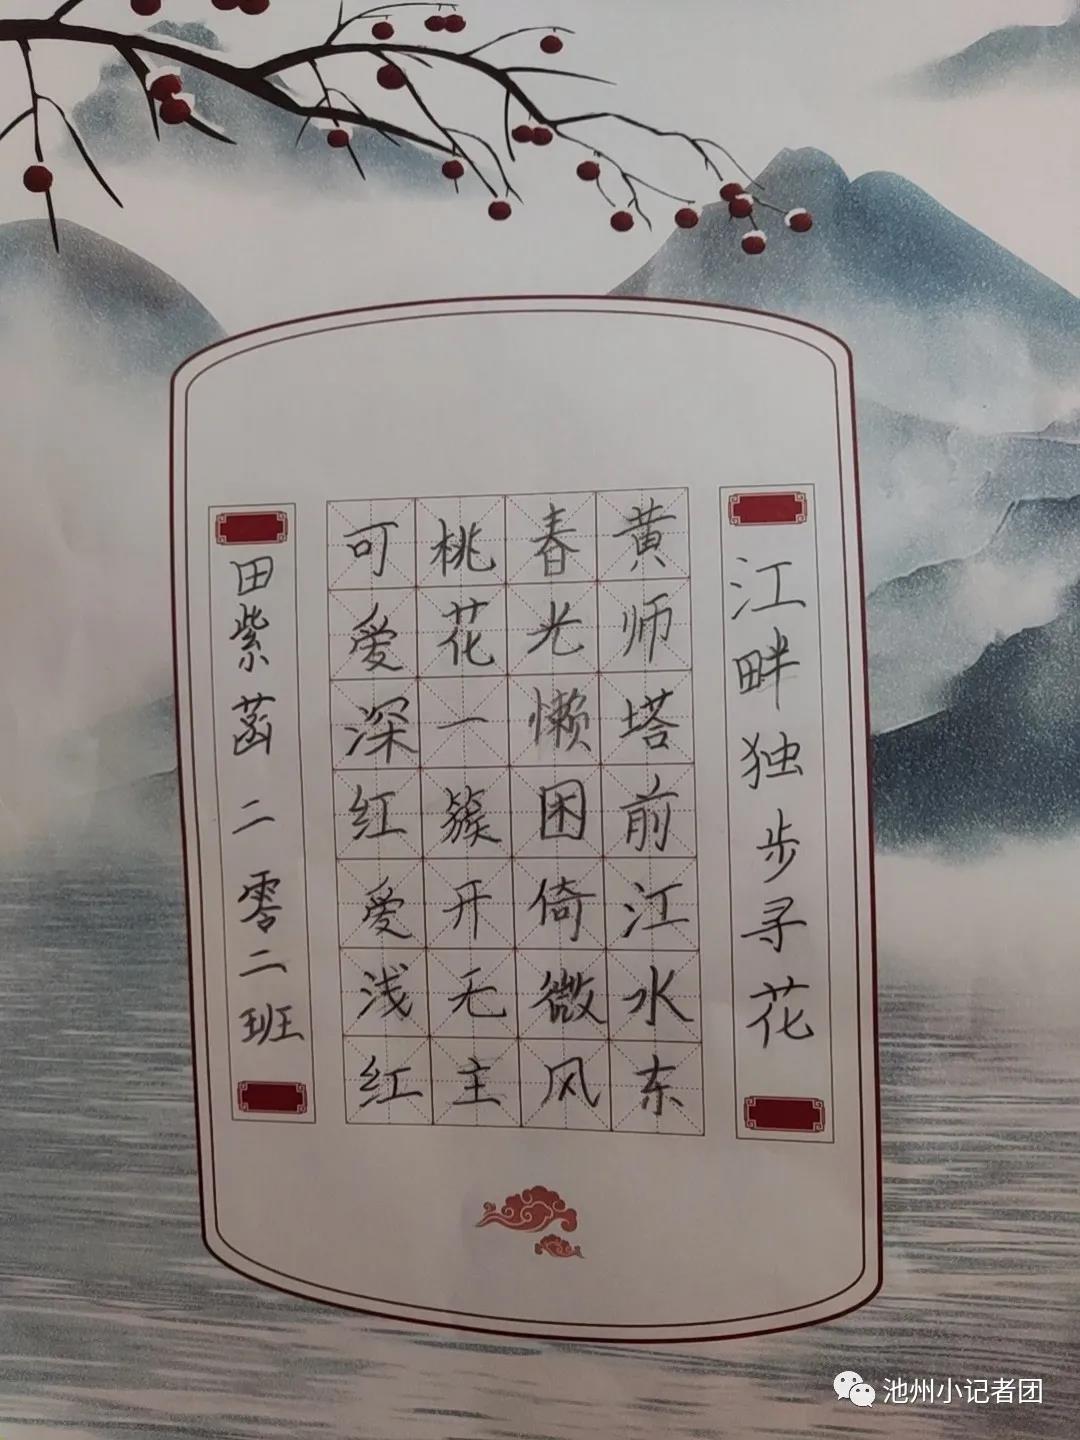 江畔独步寻花
黄师塔前江水东
春光懒困倚微风
桃花一簇开无主
可爱深红爱浅红
田紫菡 二零二班
池州小记者团